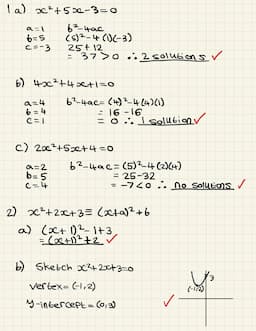 1a) x²+5x-3=0
a=1 b²-4ac
b=5 (5)²-4(1)(-3)
c=-3 25+12
= 37>0 ∴ 2 solutions ✓
b) 4x²+4x+1=0
a=4 b²-4ac= (4)²-4(4)(1)
b=4 = 16-16
c=1 = 0 ∴ 1 solution ✓
c) 2x²+5x+4=0
a=2 b²-4ac= (5)²-4(2)(4)
b=5 = 25-32
c=4 = -7<0 ∴ no solutions ✓
2) x²+2x+3≡ (x+a)²+b
a) (x+1)²-1+3
= (x+1)²+2 ✓
b) Sketch x²+2x+3=0
vertex= (-1,2)
y-intercept= (0,3) ✓
(-1,2)
3